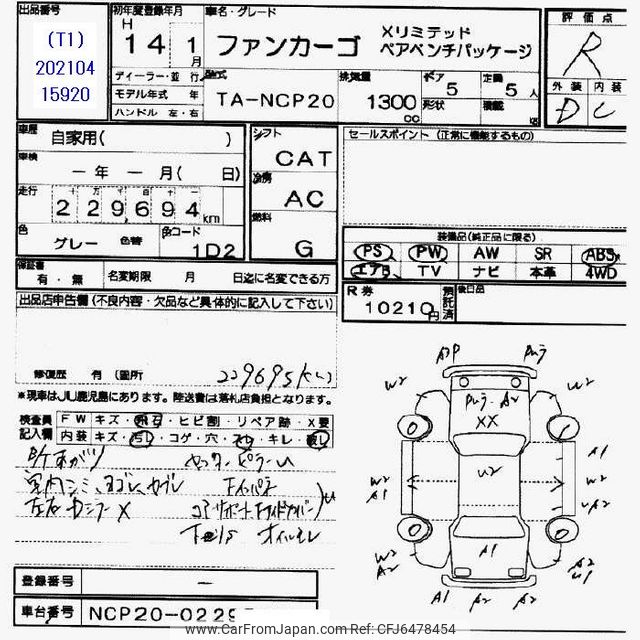 出品番号
(T1)
202104
15920
初年度登録年月
H
14 1
月
車名・グレード
ファンカーゴ
Xリミテッド
ペアベンチパッケージ
評価点
R
外装 内装
D C
ディーラー・並行
モデル年式 年
ハンドル 左・右
型式
TA-NCP20
排気量
1300
cc
ドア
5
形状
定員
5人
積載
kg
車歴
自家用( )
車検
ー年 ー月( 日)
走行
229,694 km
色
グレー
色替
色コード
1D2
シフト
CAT
冷房
AC
燃料
G
セールスポイント (正常に機能するもの)
装備品(純正品に限る)
PS PW AW SR ABS
エアB TV ナビ 本革 4WD
保証書
有・無
名変期限 月 日迄に名変できる方
R券
10210円
預託済
後日品
出品店申告欄(不良内容・欠品など具体的に記入して下さい)
修復歴 有(箇所
229695
*現車はJU鹿児島にあります。陸送費は落札店負担となります。
検査員
記入欄
FW キズ・飛石・ヒビ割・リペア跡・X要
内装 キズ・汚レ・コゲ・穴・スレ・キレ・破レ
左右カシラ X
オイルモレ
W2
W2
A2
XX
U2
W2
A1
A1
W2
A2
W2
A2
A1
A2
U1
A1 A2 A2
登録番号
ー
車台番号
NCP20-0229
www.CarFromJapan.com Ref: CFJ6478454